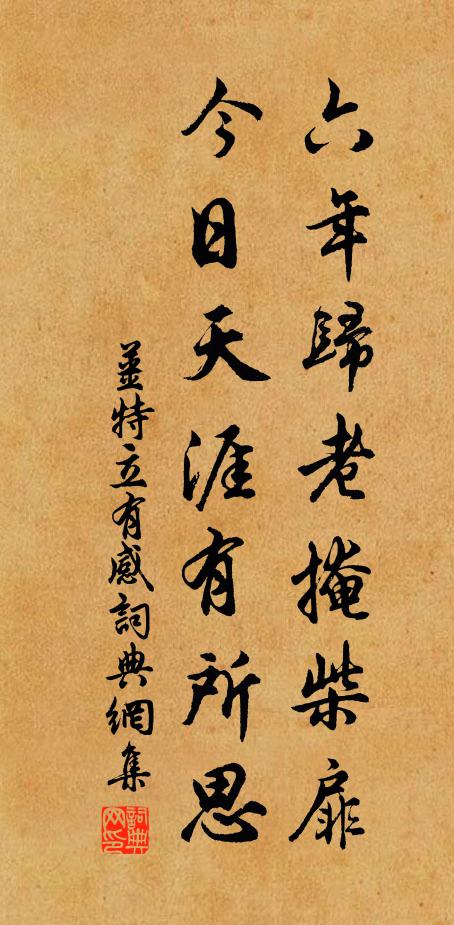 六年歸老掩柴扉
今日天涯有所思
姜特立有感詞典網集
詞典網印